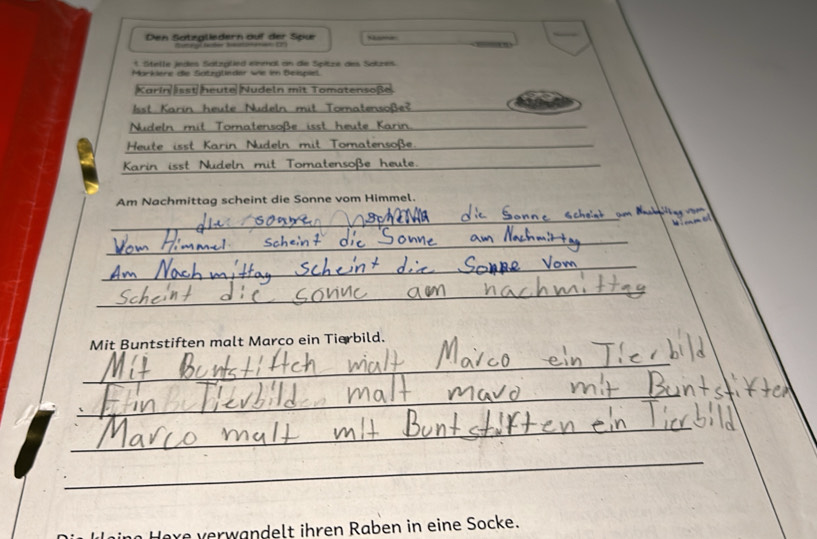 Den Satzgliedern auf der Spur
1. Stelle jedes Satzglied einmal an die Spitze des Satzes.
Markiere die Satzglieder wie im Beispiel.
Karin isst heute Nudeln mit Tomatensoße.
Isst Karin heute Nudeln mit Tomatensoße?
Nudeln mit Tomatensoße isst heute Karin.
Heute isst Karin Nudeln mit Tomatensoße.
Karin isst Nudeln mit Tomatensoße heute.
Am Nachmittag scheint die Sonne vom Himmel.
die Sonne scheint am Nachmittag vom Himmel
Vom Himmel scheint die Sonne am Nachmittag
Am Nachmittag scheint die Sonne Vom
Scheint die sonne am nachmittag
Mit Buntstiften malt Marco ein Tierbild.
Mit Buntstiften malt Marco ein Tierbild
Ein Tierbild malt marco mit Buntstiften
Marco malt mit Buntstiften ein Tierbild
kleine Hexe verwandelt ihren Raben in eine Socke.